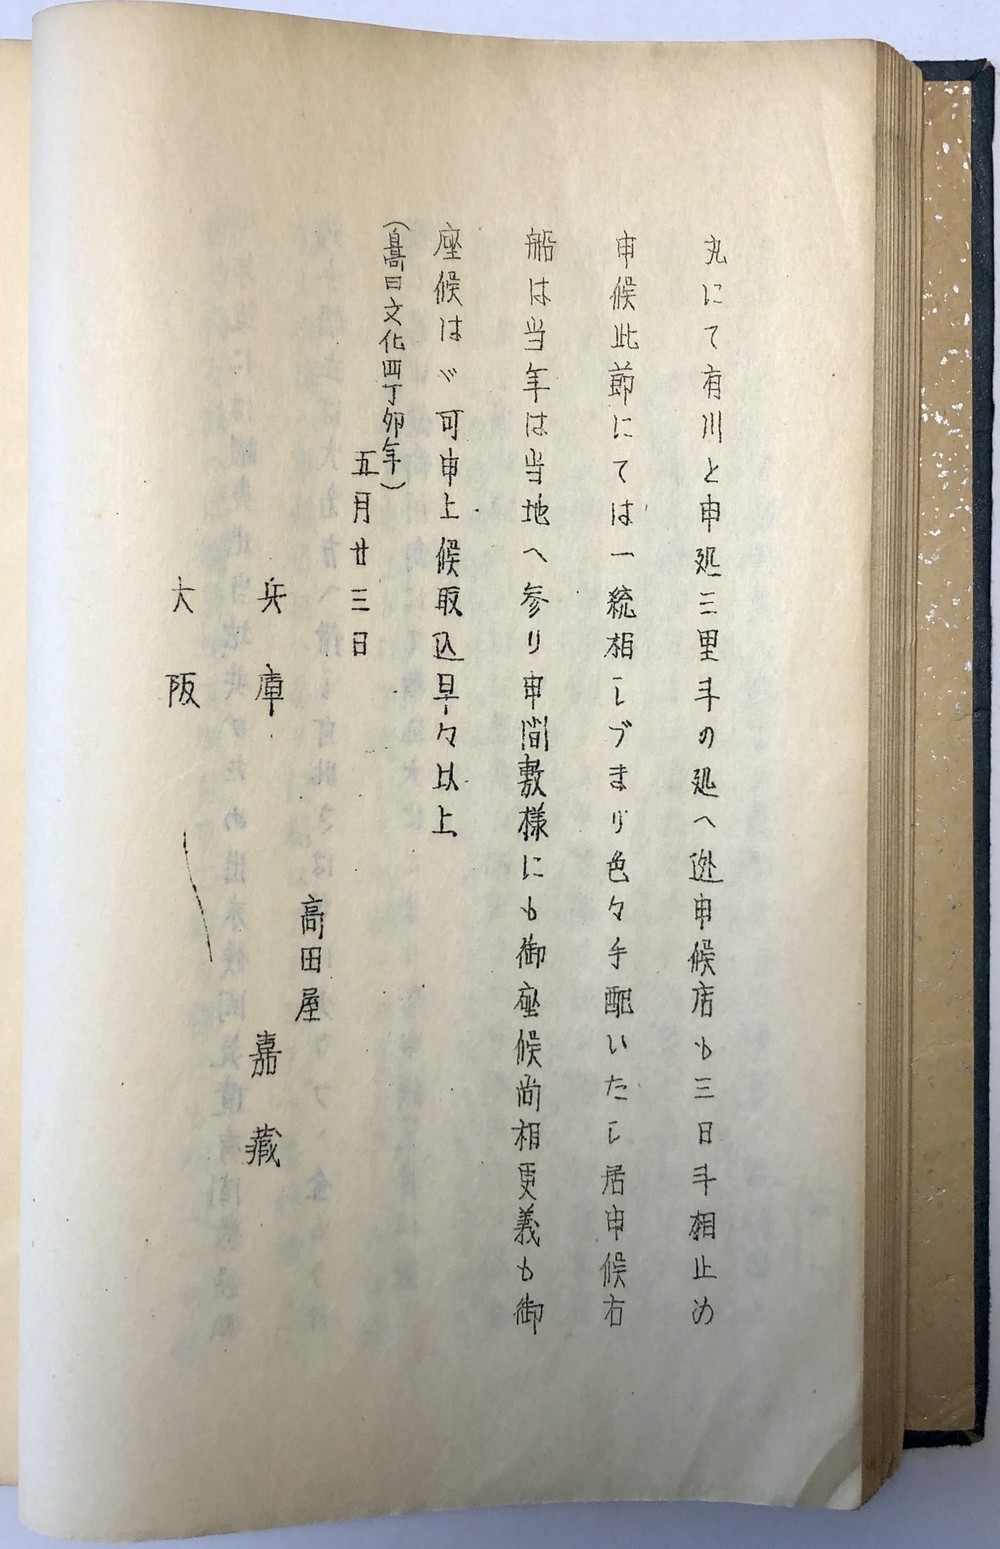 丸にて有川と申処三里斗の処へ迯申候店も三日斗相止め
申候此節にては一統相しづまり色々手配いたし居申候右
船は当年は当地へ参り申間敷様にも御座候尚相更義も御
座候はゞ可申上候取込早々以上
(嵓曰文化四丁卯年)
五月廿三日
高田屋
嘉蔵
兵庫
大阪